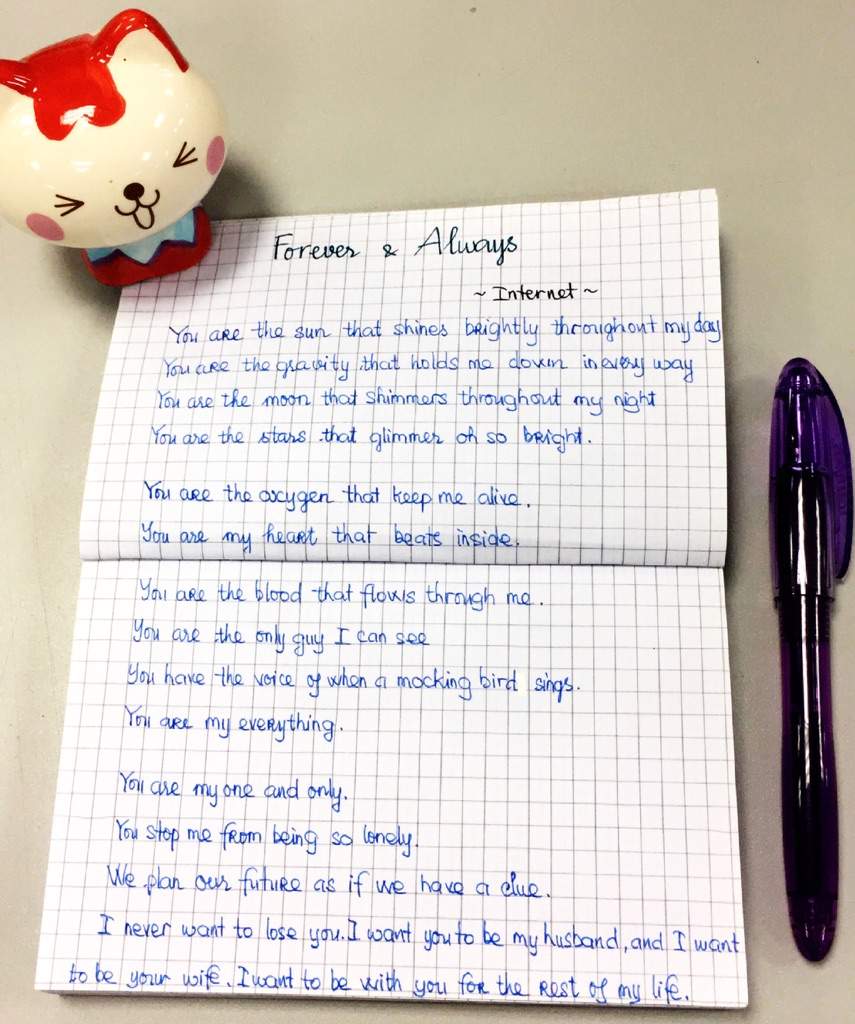 Forever & Always
~ Internet ~
You are the sun that shines brightly throughout my day
You are the gravity that holds me down in every way
You are the moon that shimmers throughout my night
You are the stars that glimmer oh so bright.
You are the oxygen that keep me alive.
You are my heart that beats inside.
You are the blood that flows through me.
You are the only guy I can see
You have the voice of when a mocking bird sings.
You are my everything.
You are my one and only.
You stop me from being so lonely.
We plan our future as if we have a clue.
I never want to lose you. I want you to be my husband, and I want
to be your wife. I want to be with you for the rest of my life.